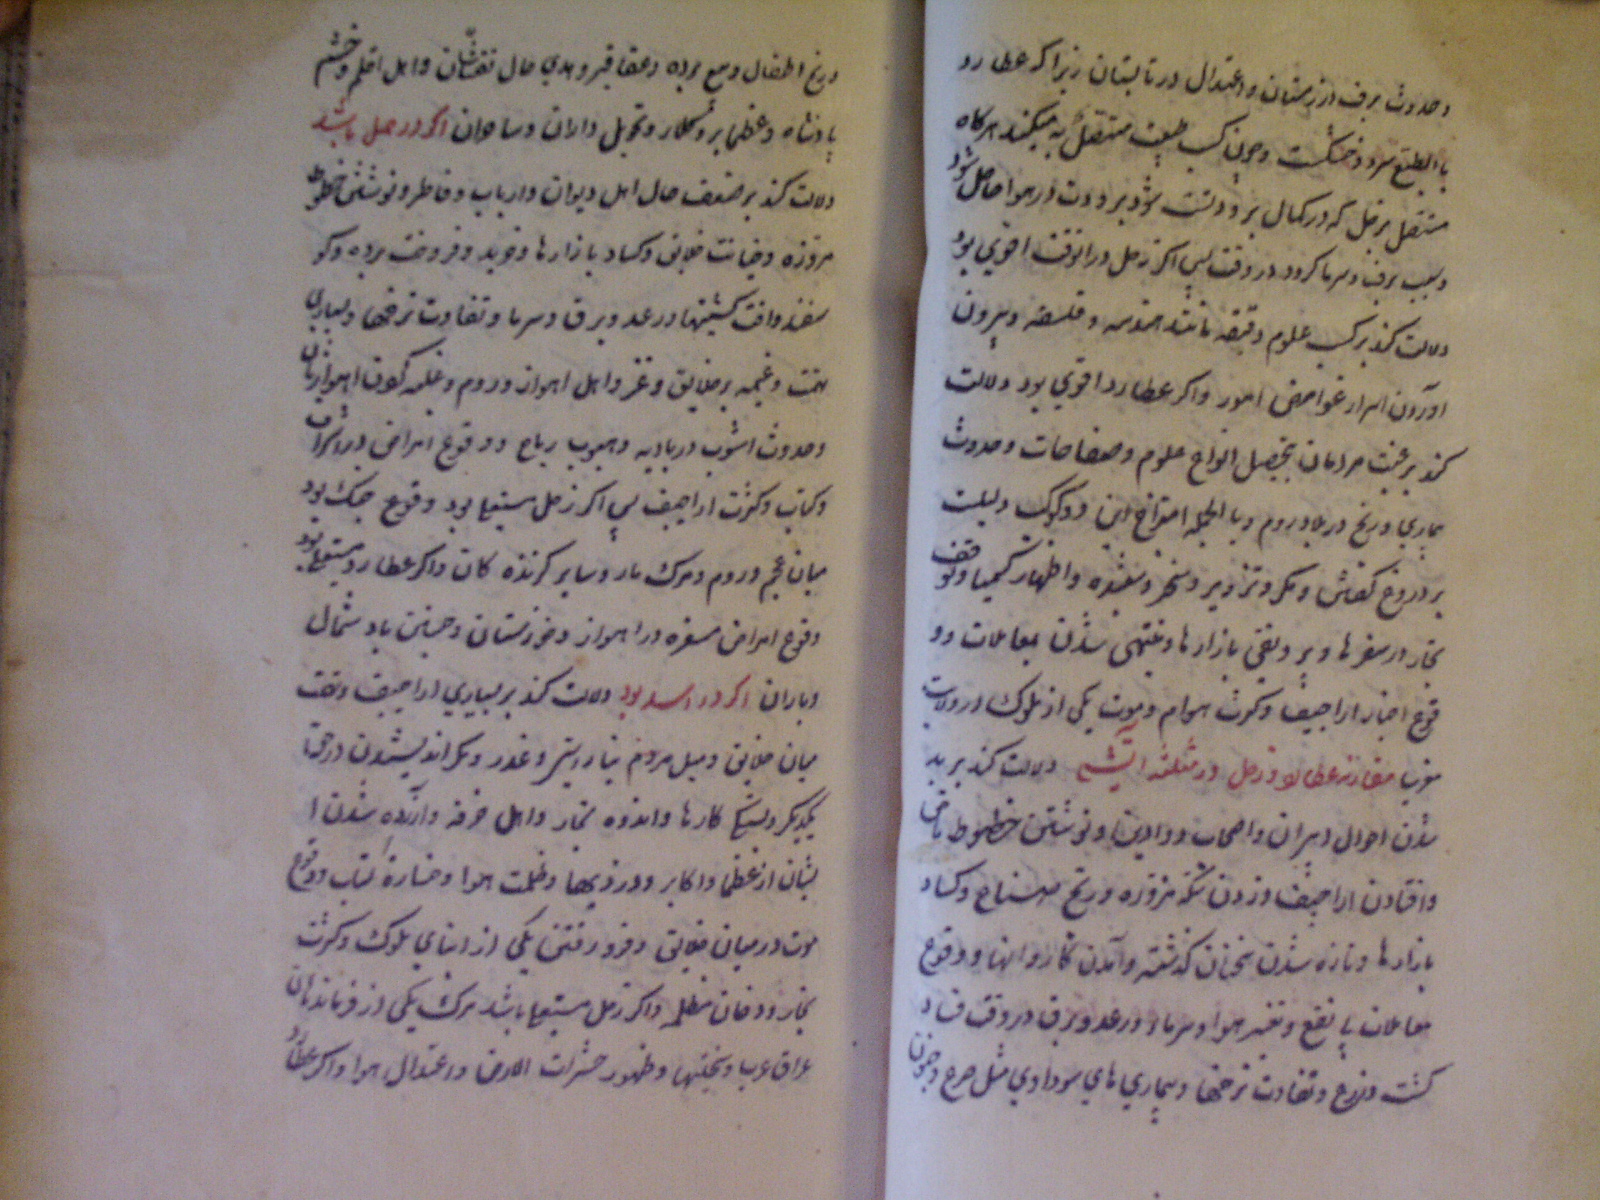 و حدوث برف در زمستان و اعتدال در تابستان زیرا که عطارد
بالطبع سرد و خشکست و چون کسب طبیعت متصل به میکند هرگاه
متصل بزحل که در کمال برودتست شود برودت در هوا حاصل شود
و سبب برف و سرما گردد در وقت پس اگر زحل در انوقت اقوی بود
دلالت کند بر کسب علوم دقیقه مانند هندسه و فلسفه و بیرون
اوردن اسرار غوامض امور و اگر عطارد اقوی بود دلالت
کند بر رغبت مردمان بتحصیل انواع علوم و صناعات و حدوث
بیماری و رنج در بلاد روم و بالجمله امتزاج این دو کوکب دلیلست
بر دروغ گفتن و مکر و تزویر و سحر و شعبده و اظهار کیمیا و توقف
تجار در سفرها و بی رونقی بازارها و منتهی شدن معاملات و و
قوع اخبار اراجیف و کثرت هوام و موت یکی از ملوک در ولایت
مغرب مقارنه عطارد و زحل در مثلثه آتشی دلالت کند بر بد
شدن احوال دبیران و اصحاب دواوین و نوشتن خطوط
و افتادن اراجیف و زدن سکه مزوره و رنج صناع و کساد
بازارها و تازه شدن سخنان گذشته و آمدن کاروانها و وقوع
معاملات بی نفع و تغیر هوا و سرما و رعد و برق در وقت فساد
کشت و زرع و تفاوت نرخها و بیماری های سوداوی مثل صرع و جنون
و رنج اطفال و بیع برده و عقاقیر و بدی حال نقاشان و اهل اقلم و خشم
پادشاه و عظما بر تحویل داران و ساحران اگر در حمل باشد
دلالت کند بر ضعف حال اهل دیوان و ارباب و نوشتن خطوط
مزوره و خیانت خلایق و کساد بازارها و خرید و فروخت برده و کو
سفند و افت کشتیها و رعد و برق و سرما و تفاوت نرخها و بسیاری
و غیمه بر خلایق و اهل اهواز و روم و
و حدوث اشوب در بادیه و هبوب ریاح و وقوع امراض در اشراف
و کتاب و کثرت اراجیف پس اگر زحل مستعلی بود وقوع جنک بود
میان عجم و روم و مرک مار و سایر کزنده کان و اگر عطارد مستعلی بود
وقوع امراض در اهواز و خوزستان و جستن باد شمال
و باران اگر در اسد بود دلالت کند بر بسیاری اراجیف و
میان خلایق و میل مردم و غدر و مکر اندیشیدن در حق
یکدیگر و کارها و اندوه تجار و اهل حرفه و آزرده شدن ا
یشان از عظما و اکابر و دزدیها و ظلمت هوا و خساره کتاب و وقوع
موت در میان خلایق و فرو رفتن یکی از ابنای ملوک و کثرت
بخار و دخان مظلمه و اگر زحل مستعلی باشد مرک یکی از فرماندهان
عراق عرب و ظهور حشرات الارض و اعتدال هوا و اگر عطارد